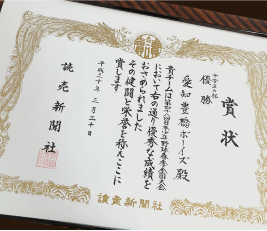 賞状
中学生の部
優勝
愛知豊橋ボーイズ殿
貴チームは第八回日本少年野球春季全国大会
において右の通り優秀な成績を
おさめられました
その健闘と栄誉を称えここに
賞します
平成二十年三月三十日
読売新聞社
讀賣新聞社